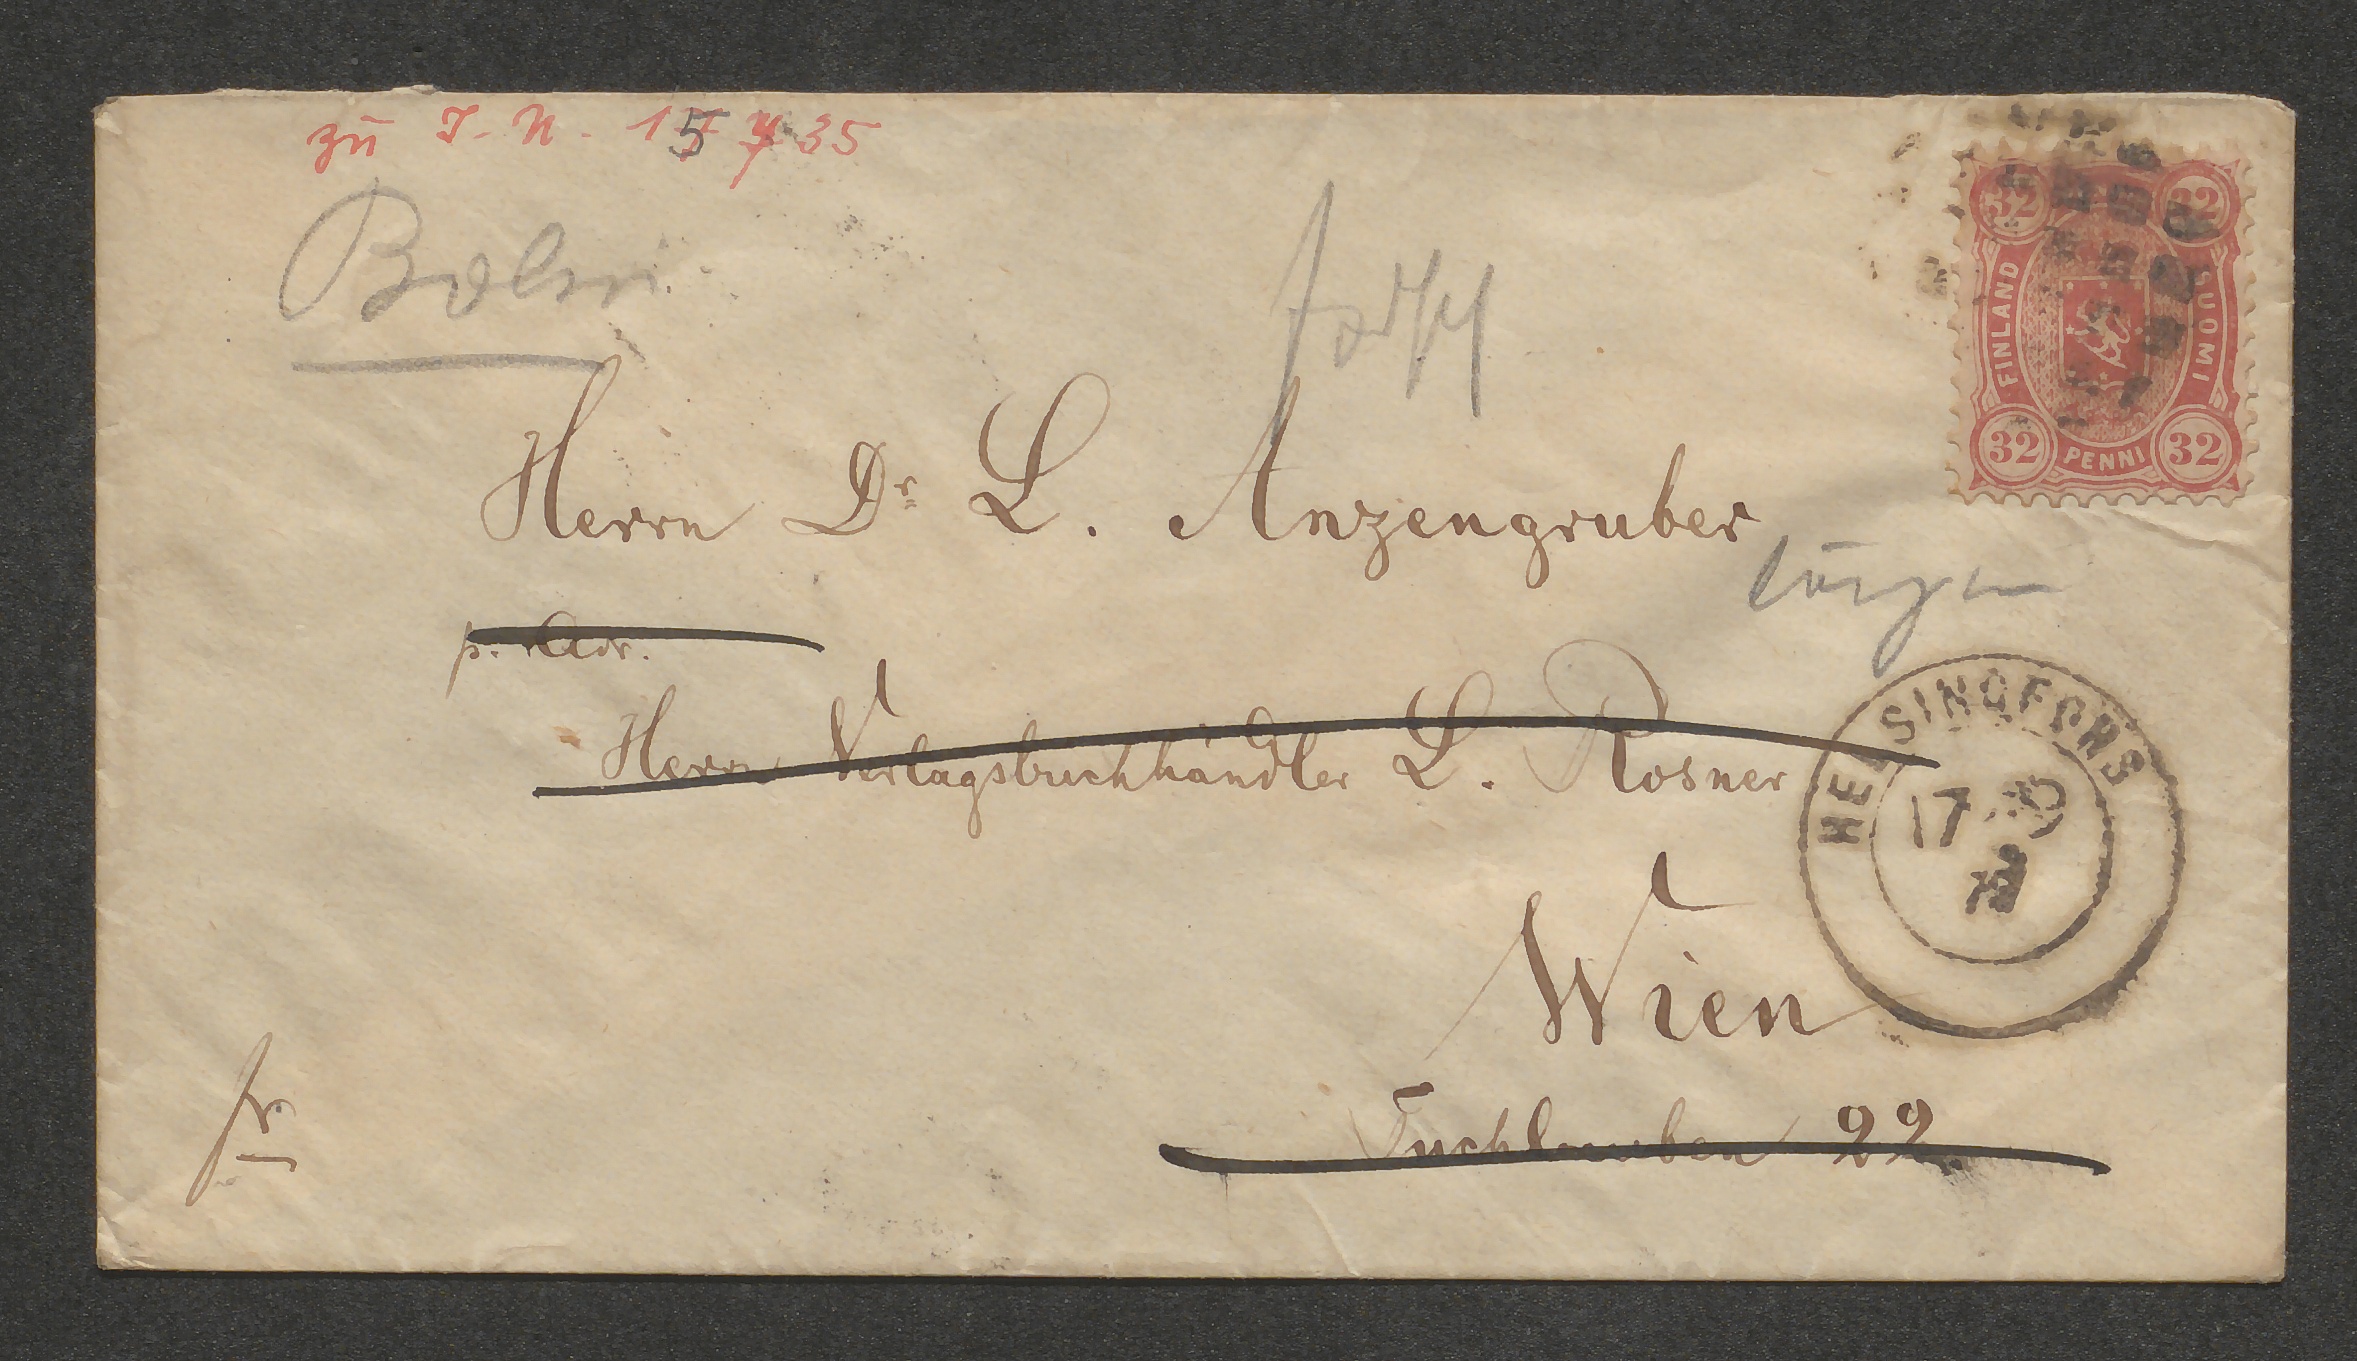 zu I. N. 15 7 35
32 32
FINLAND SUOMI
32 PENNI 32
Herrn Dr. L. Anzengruber
p. Adr.
Herrn Verlagsbuchhändler L. Rosner
HELSINGFORS
17
Wien
Tuchlauben 22
fr.